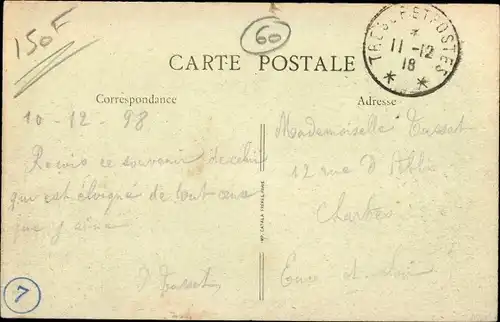 150F
60
TRESOR ET POSTES
*
11-12
18
* *
CARTE POSTALE
Correspondance
Adresse
10-12-98
Mademoiselle Tasset
Reçois ce souvenir de celui
12 rue d
qui est éloigné de tout ceux
que j aime
Chartres
Tasset
Eure-et-Loir
IMP. CATALA FRERES, PARIS
7